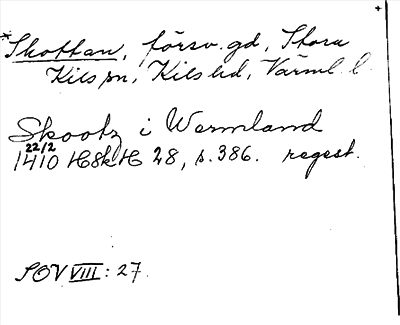 *Skottan, försv. gd, Stora
Kils sn, Kils hd, Värml. l.
Skootz i Wermland
22/2
1410 HSkH 28, s. 386. regest.
SOV VIII: 27.